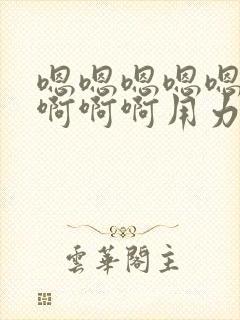 嗯嗯嗯嗯嗯
啊啊啊用力
雲華閣主